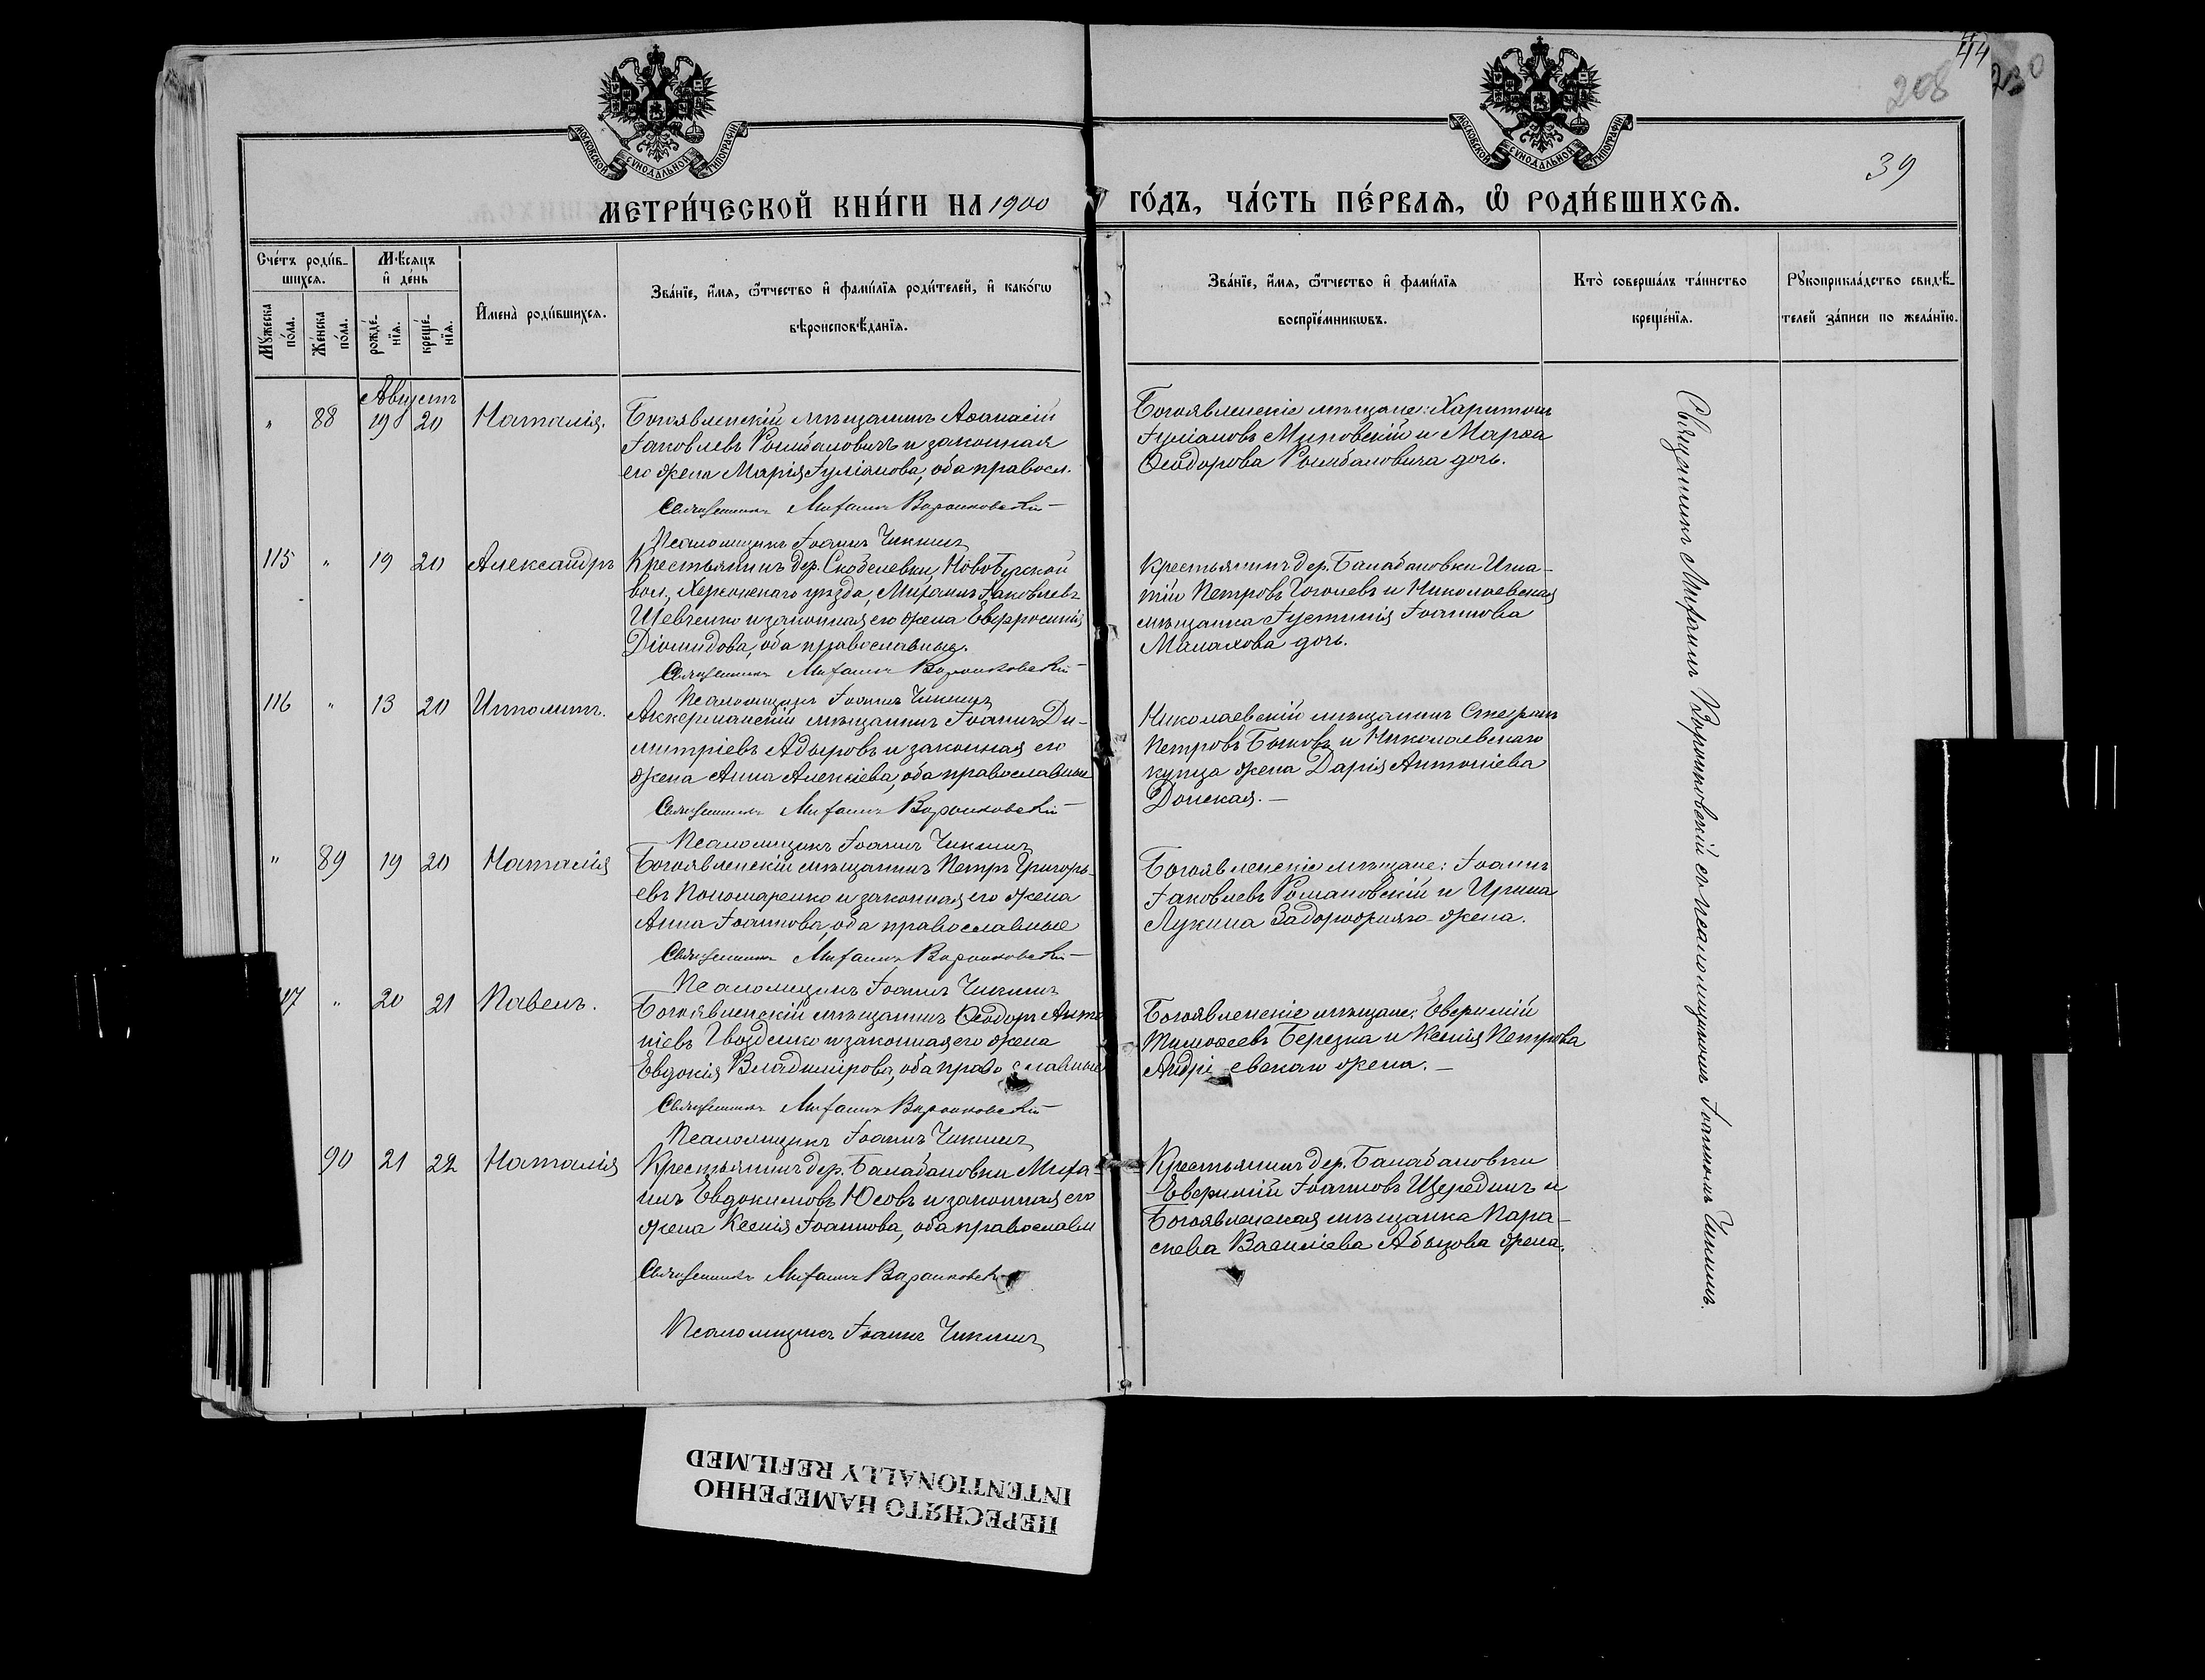 44
208
230
39
МОСКОВСКОЙ СѴНОДАЛЬНОЙ ТИПОГРАФІИ
МОСКОВСКОЙ СѴНОДАЛЬНОЙ ТИПОГРАФІИ
МЕТРИ́ЧЕСКОЙ КНИ́ГИ НА 1900 ГО́ДЪ, ЧА́СТЬ ПЕ́РВАѦ, Ѡ РОДИ́ВШИХСѦ.
Сче́тъ роди́в-
шихся.
Мѣ́сяцъ
и҆ де́нь
Мꙋ́жеска
по́ла.
Же́нска
по́ла.
рожде́-
нїя.
креще́-
нїя.
И҆мена̀ роди́вшихся.
Зва́нїе, и҆́мя, ѻ҆́тчество и҆ фами́лїя роди́телей, и҆ како́гѡ
вѣроисповѣ́данїя.
Зва́нїе, и҆́мя, ѻ҆́тчество и҆ фами́лїя
воспрїе́мникѡвъ.
Кто̀ соверша́лъ та́инство
креще́нїя.
Рꙋкоприкла́дство свидѣ́-
телей за́писи по жела́нїю.
Августъ
" 88 19 20 Наталія.
Богоявленскій мѣщанинъ Аѳанасій
Іаковлевъ Рымбаловичъ и законная
его жена Марія Іуліанова, оба правосл.
Священникъ Михаилъ Воронковскій
Псаломщикъ Іоаннъ Чикинъ
Богоявленскіе мѣщане: Харитонъ
Іуліановъ Миновскій и Марѳа
Ѳеодорова Рымбаловича дочь.
115 " 19 20 Александръ
Крестьянинъ дер. Скобелевки, Новобугской
вол., Херсонскаго уѣзда, Михаилъ Іаковлевъ
Шевченко и законная его жена Евфросинія
Діомидова, оба православные.
Священникъ Михаилъ Воронковскій
Псаломщикъ Іоаннъ Чикинъ
Крестьянинъ дер. Балабановки Игна-
тій Петровъ Гоголевъ и Николаевская
мѣщанка Іустинія Іоаннова
Малахова дочь.
116 " 13 20 Ипполитъ.
Аккерманскій мѣщанинъ Іоаннъ Ди-
митріевъ Адыровъ и законная его
жена Анна Алексіева, оба православные
Священникъ Михаилъ Воронковскій
Псаломщикъ Іоаннъ Чикинъ
Николаевскій мѣщанинъ Стефанъ
Петровъ Быковъ и Николаевскаго
купца жена Дарія Антоніева
Донская.—
" 89 19 20 Наталія
Богоявленскій мѣщанинъ Петръ Григорь-
евъ Пономаренко и законная его жена
Анна Іоаннова, оба православные
Священникъ Михаилъ Воронковскій
Псаломщикъ Іоаннъ Чикинъ
Богоявленскіе мѣщане: Іоаннъ
Іаковлевъ Романовскій и Ирина
Лукина Задорожняго жена.
17 " 20 21 Павелъ.
Богоявленскій мѣщанинъ Ѳеодоръ Анто
ніевъ Гвозденко и законная его жена
Евдокія Владимірова, оба православные
Священникъ Михаилъ Воронковскій
Псаломщикъ Іоаннъ Чикинъ
Богоявленскіе мѣщане: Евфимій
Тимоѳеевъ Березка и Ксенія Петрова
Андріевскаго жена.—
90 21 22 Наталія
Крестьянинъ дер. Балабановки Миха-
илъ Евдокимовъ Юсовъ и законная его
жена Ксенія Іоаннова, оба православн
Священникъ Михаилъ Воронковскій
Псаломщикъ Іоаннъ Чикинъ
Крестьянинъ дер. Балабановки
Евфимій Іоанновъ Щерединъ и
Богоявленская мѣщанка Пара-
скева Василіева Абызова жена.
Священникъ Михаилъ Воронковскій съ псаломщикомъ Іоанномъ Чикинымъ.
ПЕРЕСНЯТО НАМЕРЕННО
INTENTIONALLY REFILMED